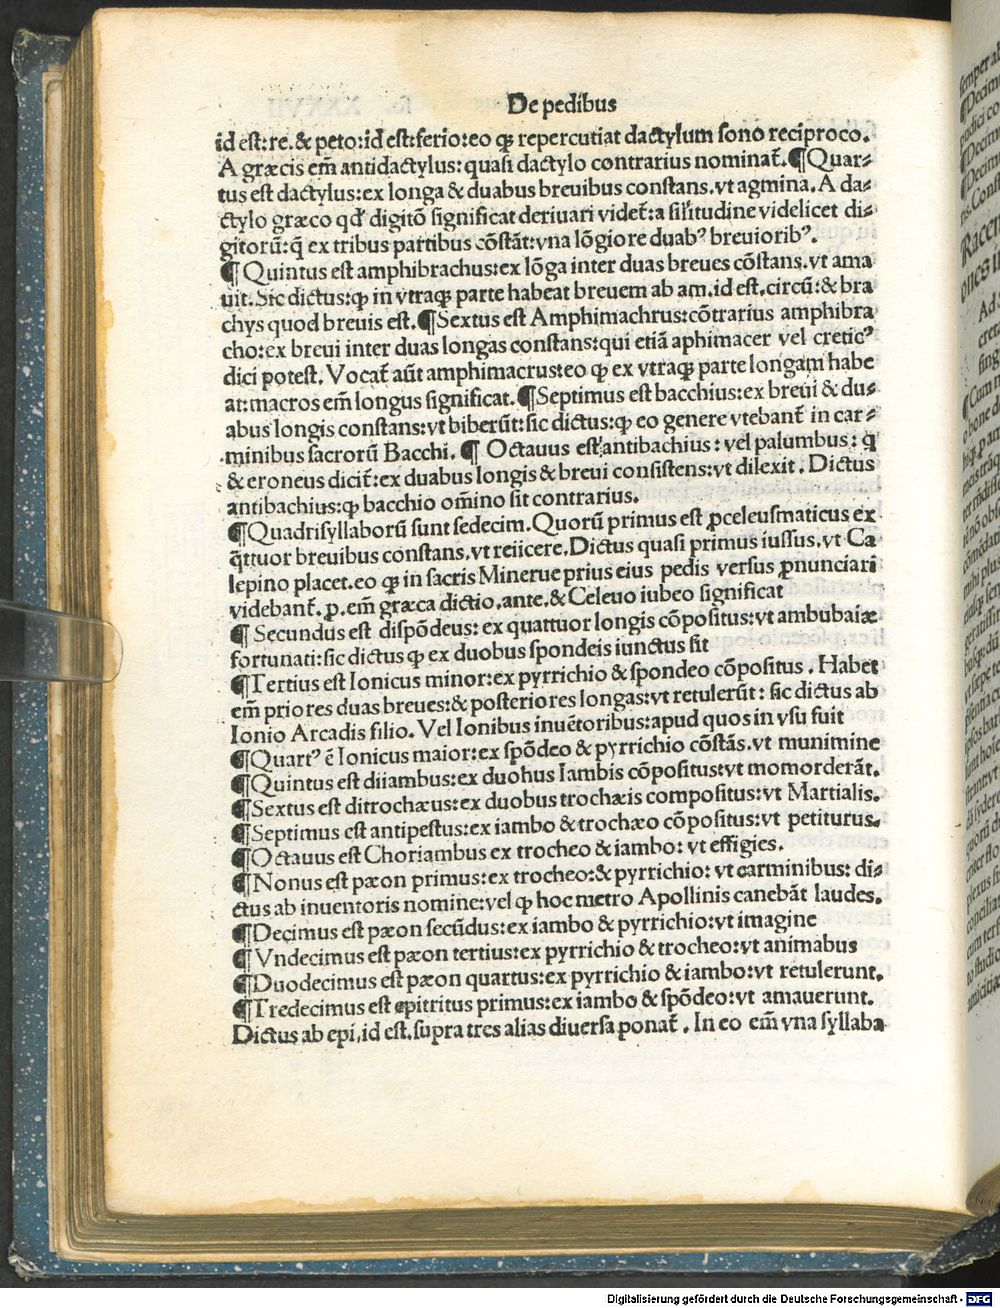 De pedibus
id est: re. & peto: id est: ferio: eo ꝙ repercutiat dactylum sono reciproco.
A græcis em̄ antidactylus: quasi dactylo contrarius nominat̄. ¶ Quar⸗
tus est dactylus: ex longa & duabus breuibus constans. vt agmina. A da⸗
ctylo græco qd' digitō significat deriuari videt̄: a sil'itudine videlicet di⸗
gitorū: q̄ ex tribus partibus cōstāt: vna lōgiore duabꝰ breuioribꝰ.
¶ Quintus est amphibrachus: ex lōga inter duas breues cōstans. vt ama
uit. Sic dictus: ꝙ in vtraqꝫ parte habeat breuem ab am. id est. circū: & bra
chys quod breuis est. ¶ Sextus est Amphimachrus: cōtrarius amphibra
cho: ex breui inter duas longas constans: qui etiā aphimacer vel creticꝰ
dici potest. Vocat̄ aūt amphimacrus: eo ꝙ ex vtraqꝫ parte longam habe
at: macros em̄ longus significat. ¶ Septimus est bacchius: ex breui & du⸗
abus longis constans: vt biberūt: sic dictus: ꝙ eo genere vtebant̄ in car⸗
minibus sacrorū Bacchi. ¶ Octauus est antibachius: vel palumbus: q̄
& eroneus dicit̄: ex duabus longis & breui consistens: vt dilexit. Dictus
antibachius: ꝙ bacchio om̄ino sit contrarius.
¶ Quadrisyllaborū sunt sedecim. Quorū primus est ꝓceleusmaticus ex
q̄ttuor breuibus constans. vt reiicere. Dictus quasi primus iussus. vt Ca
lepino placet. eo ꝙ in sacris Minerue prius eius pedis versus ꝓnunciari
videbant̄. ꝓ. em̄ græca dictio. ante. & Celeuo iubeo significat
¶ Secundus est dispōdeus: ex quattuor longis cōpositus: vt ambubaiæ
fortunati: sic dictus ꝙ ex duobus spondeis iunctus sit
¶ Tertius est Ionicus minor: ex pyrrichio & spondeo cōpositus. Habet
em̄ priores duas breues: & posteriores longas: vt retulerūt: sic dictus ab
Ionio Arcadis filio. Vel Ionibus inuētoribus: apud quos in vsu fuit
¶ Quartꝰ ē Ionicus maior: ex spōdeo & pyrrichio cōstās. vt munimine
¶ Quintus est diiambus: ex duohus Iambis cōpositus: vt momorderāt.
¶ Sextus est ditrochæus: ex duobus trochæis compositus: vt Martialis.
¶ Septimus est antipestus: ex iambo & trochæo cōpositus: vt petiturus.
¶ Octauus est Choriambus ex trocheo & iambo: vt effigies.
¶ Nonus est pæon primus: ex trocheo: & pyrrichio: vt carminibus: di⸗
ctus ab inuentoris nomine: vel ꝙ hoc metro Apollinis canebāt laudes.
¶ Decimus est pæon secūdus: ex iambo & pyrrichio: vt imagine
¶ Vndecimus est pæon tertius: ex pyrrichio & trocheo: vt animabus
¶ Duodecimus est pæon quartus: ex pyrrichio & iambo: vt retulerunt.
¶ Tredecimus est epitritus primus: ex iambo & spōdeo: vt amauerunt.
Dictus ab epi, id est. supra tres alias diuersa ponat̄. In eo em̄ vna syllaba
Digitalisierung gefördert durch die Deutsche Forschungsgemeinschaft - DFG